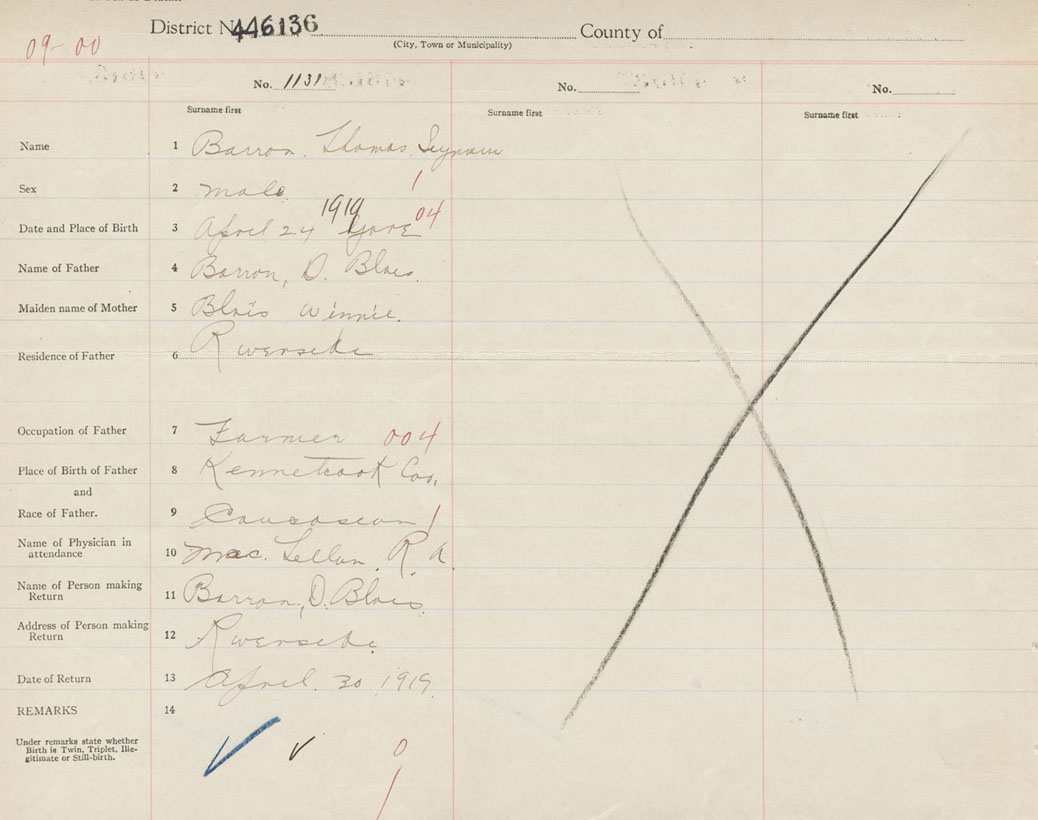 09-00
District No. 446136 County of
(City, Town or Municipality)
No. 1131 No. No.
Surname first Surname first Surname first
Name 1 Barron, Thomas Seymour
Sex 2 Male 1
1919 04
Date and Place of Birth 3 April 24 Gore
Name of Father 4 Barron, D. Blois
Maiden name of Mother 5 Blois Winnie.
Residence of Father 6 Riverside
Occupation of Father 7 Farmer 004
Place of Birth of Father 8 Kennetcook Co.,
and
Race of Father. 9 1
Name of Physician in
attendance 10 MacLellan, R. A.
Name of Person making
Return 11 Barron, D. Blois
Address of Person making
Return 12 Riverside.
Date of Return 13 April 30 1919.
REMARKS 14
Under remarks state whether
Birth is Twin, Triplet, Ille-
gitimate or Still-birth.
0
1